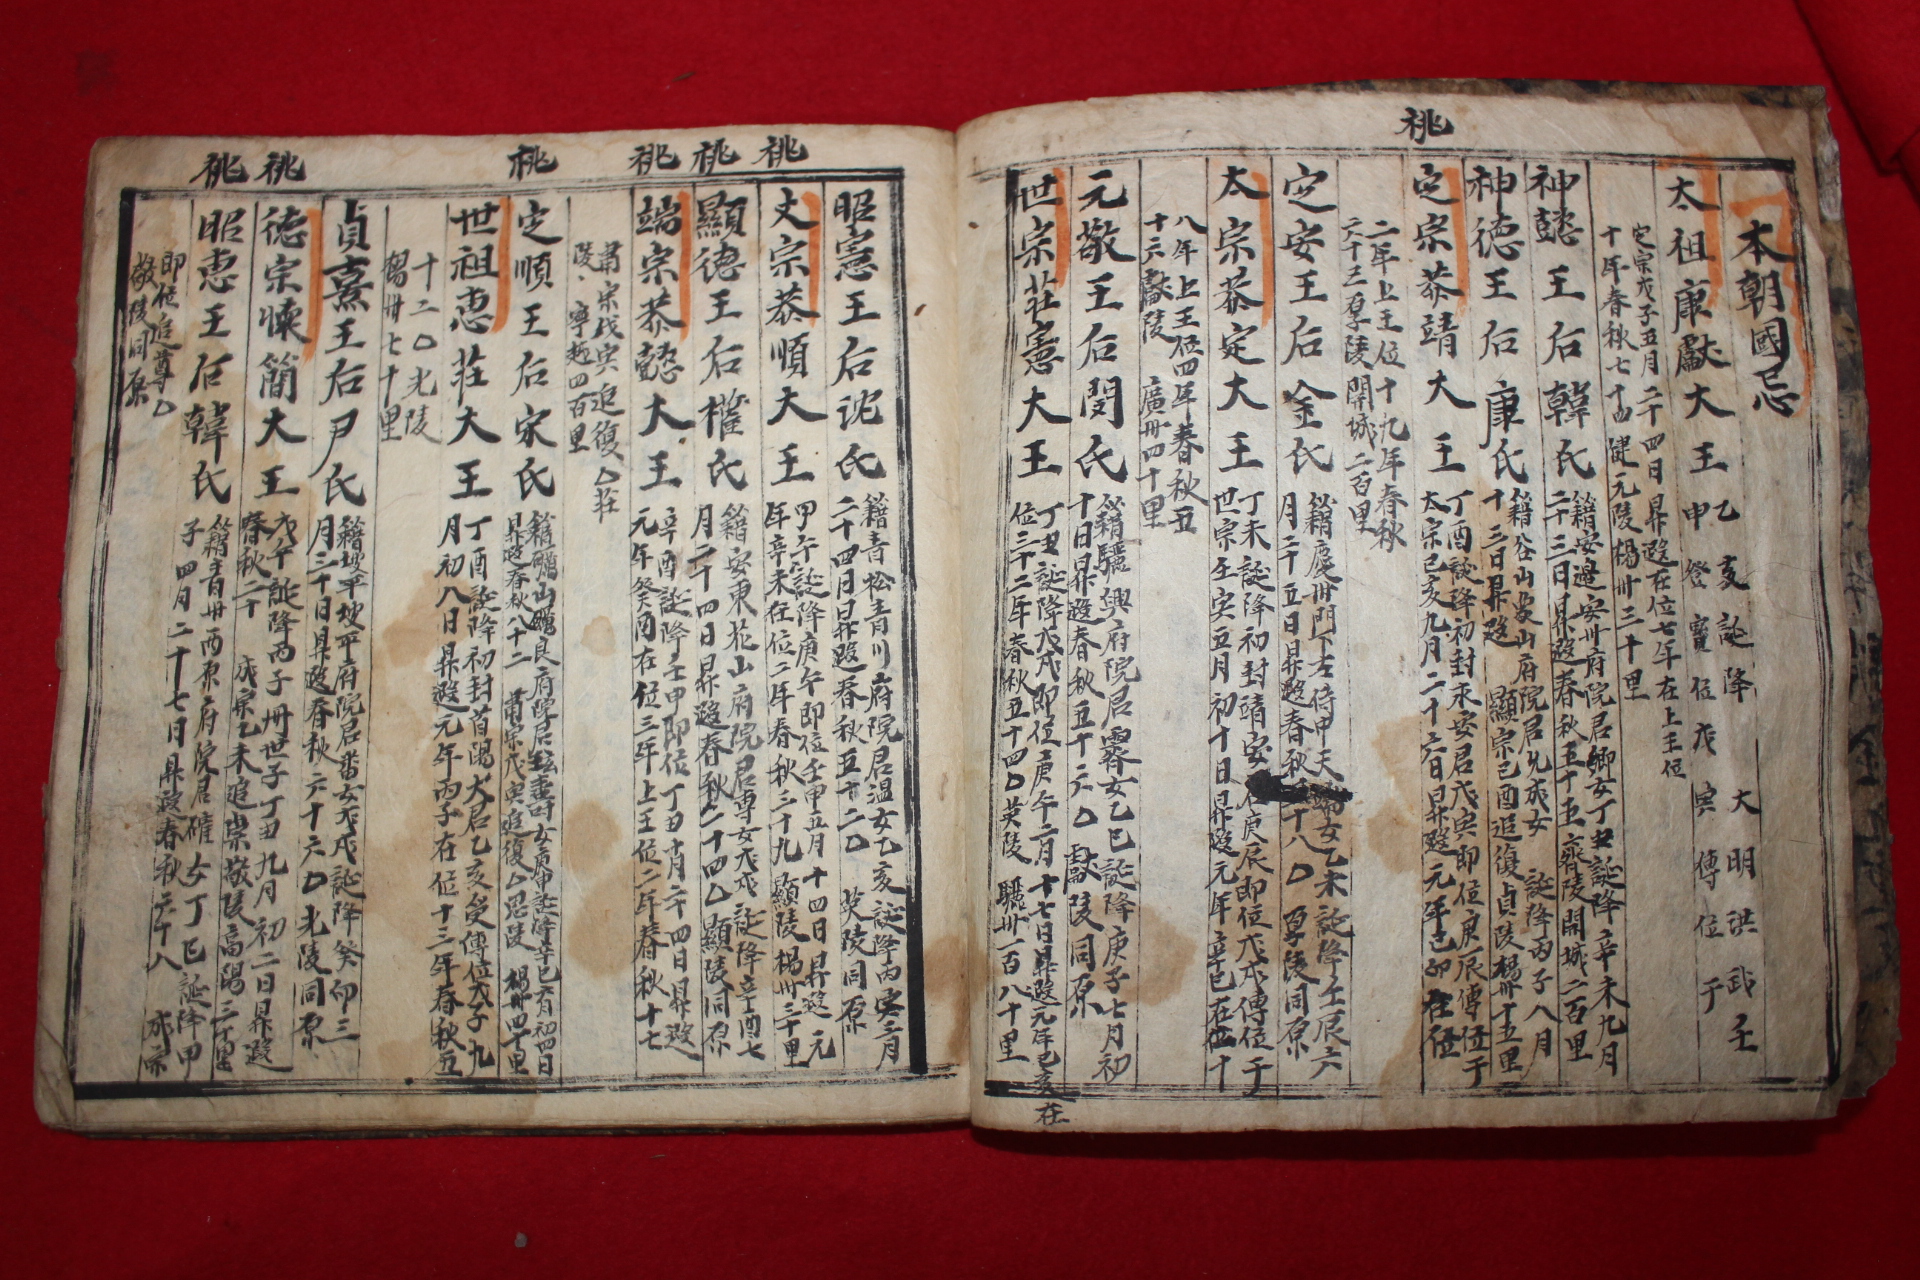 祧
本朝國忌
太祖康獻大王 乙亥誕降 大明洪武壬
申登寶位戊寅傳位于
定宗戊子五月二十四日昇遐在位七年在上王位
十年春秋七十四 健元陵楊州三十里
神懿王后韓氏 籍安邊安川府院君卿女丁丑誕降辛未九月
二十三日昇遐春秋五十五 齊陵開城二百里
神德王后康氏 籍谷山象山府院君允成女 誕降丙子八月
十三日昇遐 顯宗己酉追復貞陵楊州十五里
定宗恭靖大王 丁酉誕降初封永安君戊寅即位庚辰傳位于
太宗己亥九月二十六日昇遐元年己卯在位
二年上王位十九年春秋
六十三厚陵開城二百里
定安王后金氏 籍慶州門下左侍中天瑞女乙未誕降壬辰六
月二十五日昇遐春秋 十八〇厚陵同原
太宗恭定大王 丁未誕降初封靖安君庚辰即位戊戌傳位于
世宗壬寅五月初十日昇遐元年辛巳在位十
八年上王位四年春秋五
十六獻陵 廣州四十里
元敬王后閔氏 籍驪興府院君霽女乙巳誕降庚子七月初
十日昇遐春秋五十六〇獻陵同原
世宗莊憲大王 丁丑誕降戊戌即位庚午二月十七日昇遐元年己亥在
位三十二年春秋五十四〇英陵 驪州一百八十里
祧 祧 祧 祧 祧 祧
昭憲王后沈氏 籍青松青川府院君溫女乙亥誕降丙寅三月
二十四日昇遐春秋五十二〇 英陵同原
文宗恭順大王 甲午誕降庚午即位壬申五月十四日昇遐元
年辛未在位二年春秋三十九顯陵楊州三十里
顯德王后權氏 籍安東花山府院君專女戊戌誕降辛酉七
月二十四日昇遐春秋二十四〇顯陵同原
端宗恭懿大王 辛酉誕降壬申即位丁丑十月二十四日昇遐
元年癸酉在位三年上王位二年春秋十七
肅宗戊寅追復〇莊
陵 寧越四百里
定順王后宋氏 籍礪山礪良府院君玹壽女庚申誕降辛巳六月初四日
昇遐春秋八十二 肅宗戊寅追復〇思陵 楊州四十里
世祖惠莊大王 丁酉誕降初封首陽大君乙亥受傳位戊子九
月初八日昇遐元年丙子在位十三年春秋五
十二〇光陵
楊州七十里
貞熹王后尹氏 籍坡平坡平府院君璠女戊戌誕降癸卯三
月三十日昇遐春秋六十六〇光陵同原
德宗懷簡大王 戊午誕降丙子冊世子丁丑九月初二日昇遐
春秋二十 成宗乙未追崇敬陵高陽三十里
昭惠王后韓氏 籍青州西原府院君確女丁巳誕降甲
子四月二十七日昇遐春秋六十八 成宗
即位追尊〇
敬陵同原